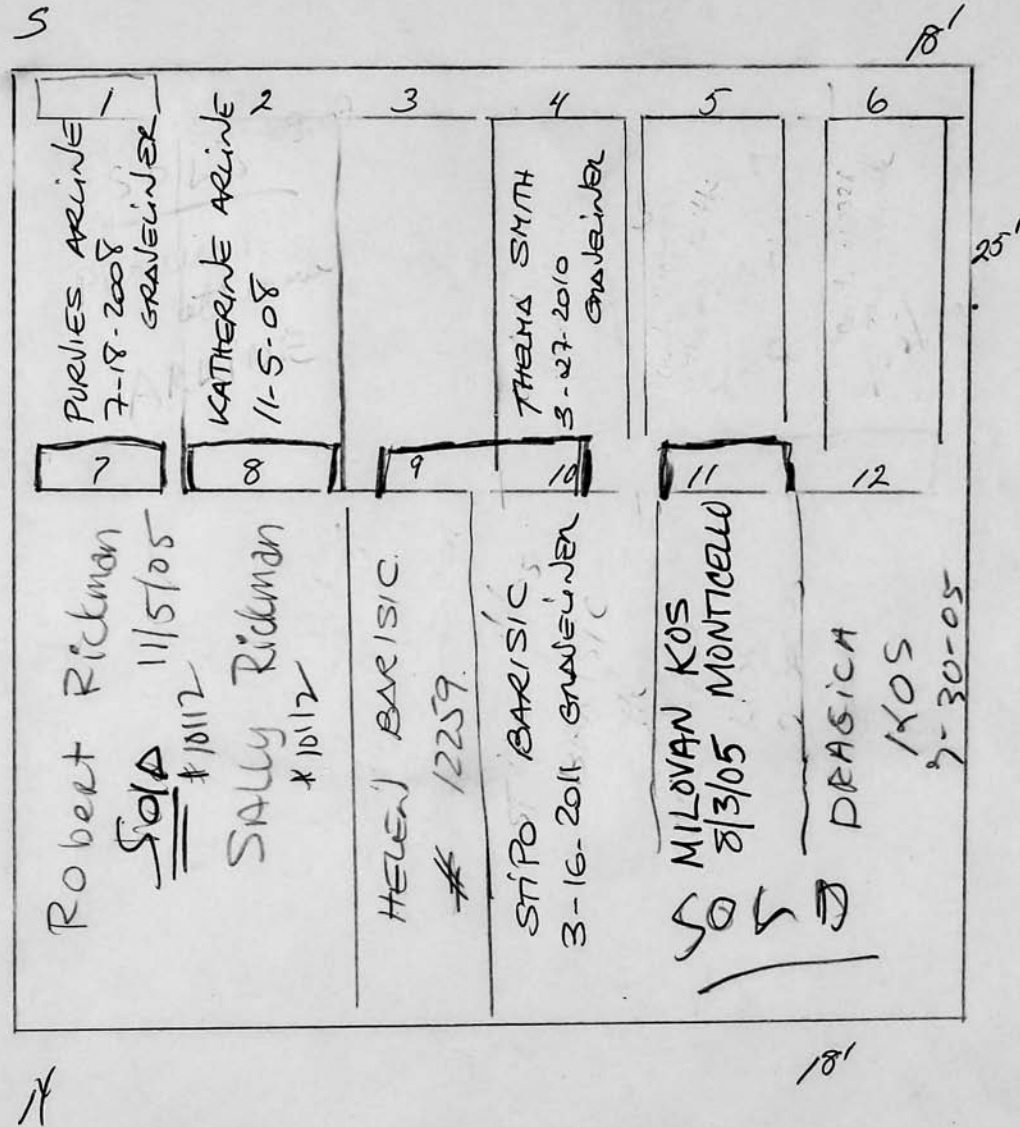 S
18'
1
2
3
4
5
6
PURVIES ARLINE
7-18-2008
GRAVELINER
KATHERINE ARLINE
11-5-08
THELMA SMITH
3-27-2010
GRAVELINER
25'
7
8
9
10
11
12
Robert Rickman
SOLD 11/5/05
#10112
SALLY Rickman
#10112
HELEN BARISIC
# 12259
STIPO BARISIC
3-16-2011 GRAVELINER
MILOVAN KOS
8/3/05 MONTICELLO
DRAGICA
KOS
-30-05
N
18'